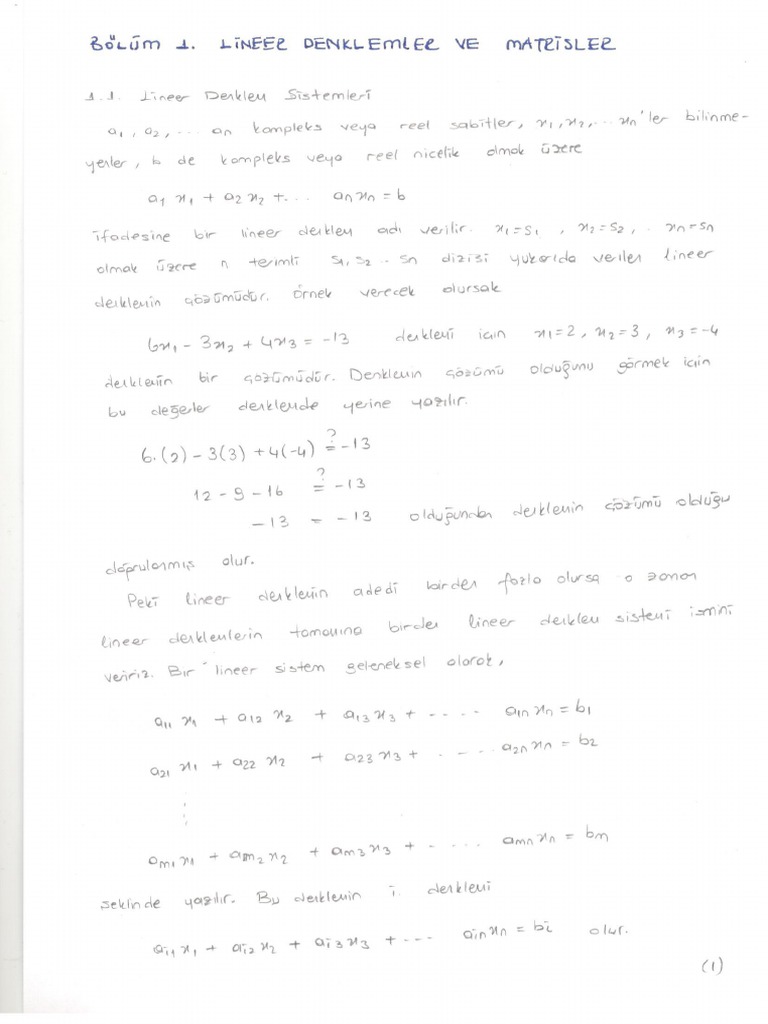 BÖLÜM 1. LİNEER DENKLEMLER VE MATRİSLER
1.1. Lineer Denklem Sistemleri
a₁, a₂, ... an kompleks veya reel sabitler, x₁, x₂, ... xn'ler bilinme-
yenler, b de kompleks veya reel nicelik olmak üzere
a₁ x₁ + a₂ x₂ +... an xn = b
ifadesine bir lineer denklem adı verilir. x₁=s₁ , x₂=s₂ , .. xn=sn
olmak üzere n terimli s₁, s₂ .. sn dizisi yukarıda verilen lineer
denklemin çözümüdür. Örnek verecek olursak
6x₁ - 3x₂ + 4x₃ = -13 denklemi için x₁=2 , x₂=3 , x₃=-4
denklemin bir çözümüdür. Denklemin çözümü olduğunu görmek için
bu değerler denklemde yerine yazılır.
6.(2) - 3(3) + 4(-4) ≟ -13
12 - 9 - 16 ≟ -13
-13 = -13 olduğundan denklemin çözümü olduğu
doğrulanmış olur.
Peki lineer denklemin adedi birden fazla olursa o zaman
lineer denklemlerin tamamına birden lineer denklem sistemi ismini
veririz. Bir lineer sistem geleneksel olarak,
a₁₁ x₁ + a₁₂ x₂ + a₁₃ x₃ + ..... a₁n xn = b₁
a₂₁ x₁ + a₂₂ x₂ + a₂₃ x₃ + ..... a₂n xn = b₂
⋮
am₁ x₁ + am₂ x₂ + am₃ x₃ + ..... amn xn = bm
şeklinde yazılır. Bu denklemin i. denklemi
ai₁ x₁ + ai₂ x₂ + ai₃ x₃ + ... ain xn = bi olur.
(1)